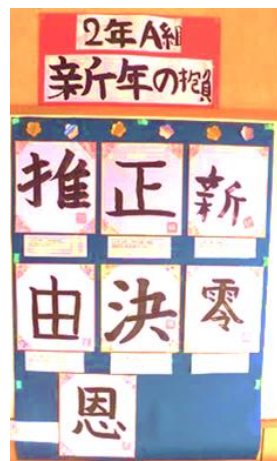 2年A組
新年の抱負
推 正 新
由 決 零
恩